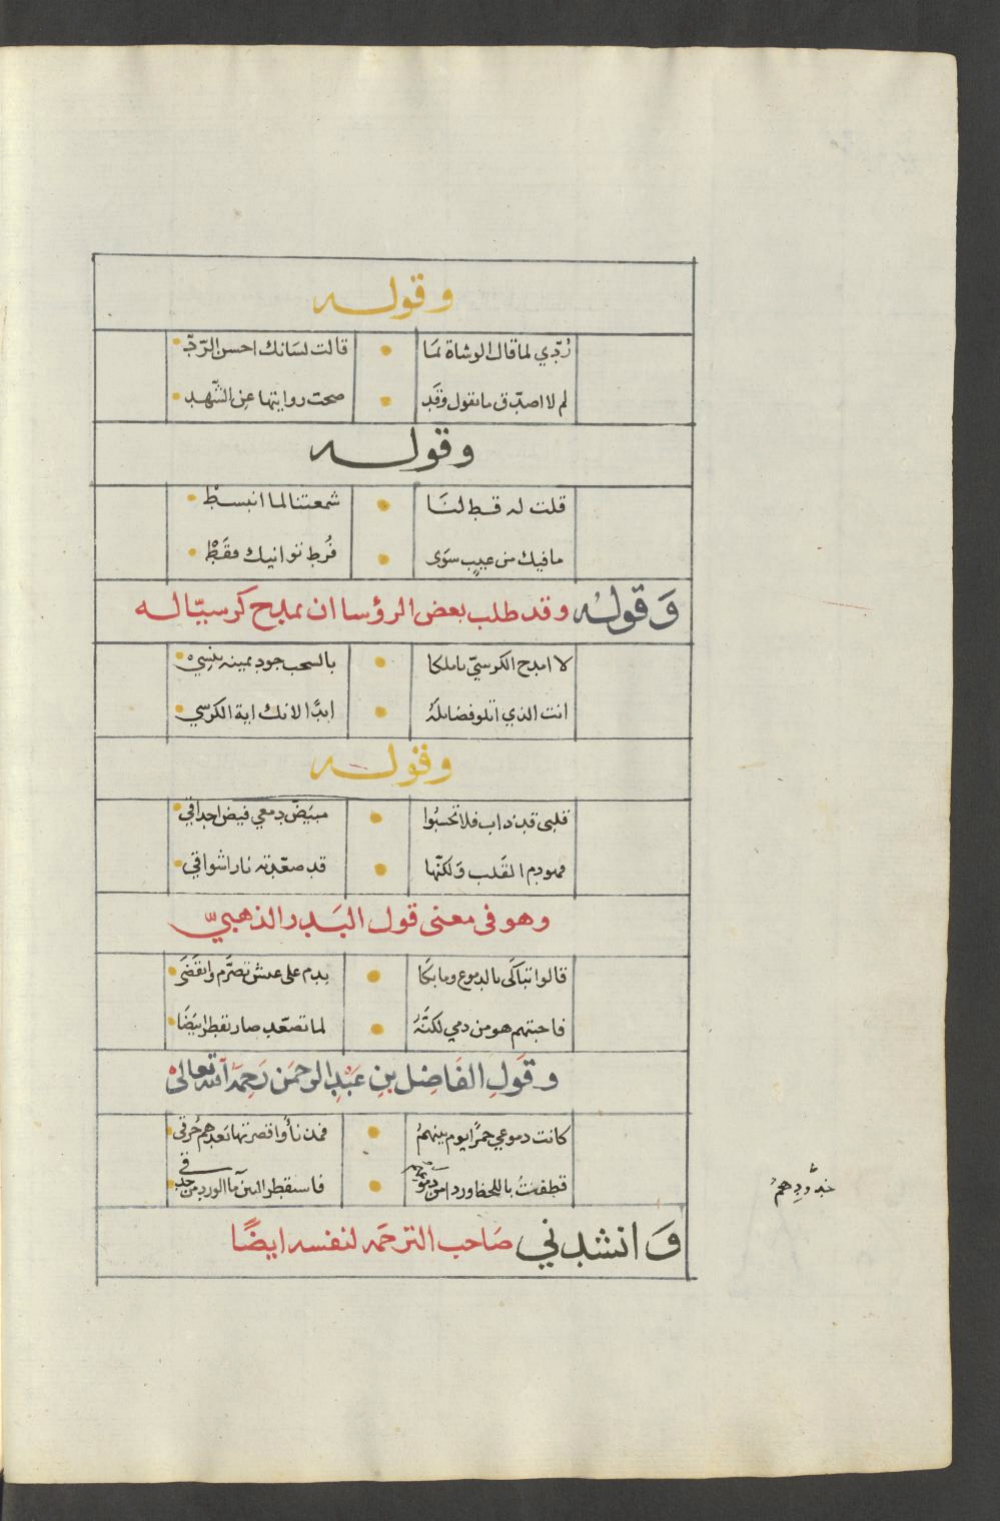 وقوله
رُدّي لما قال الوشاة لمَا • قالت لسَانك احسن الرّدّ •
لم لا اصدّق ما تقول وقَد • صحت روايتها عن الشّهد •
وقوله
قلت له قط لنَا • شمعتنا لما انبسطْ •
ما فيك من عيبٍ سوَى • فُرط توانيك فقَطْ •
وَقولهُ وقد طلب بعض الرؤسا ان يمدح كرسيّا له
لا امدح الكرسيّ يا ملكا • بالسحب جود يمينه ينسِيْ •
انت الذي اتلو فضايلهُ • ابدًا لانك اية الكرسي •
وقوله
قلبى قد ذاب فلا تحسبُوا • مبيَضّ دمعي فيض احداقي •
فهو دم القَلب وَلكنّها • قد صعّدته نار اشواقي •
وهو فى معنى قول البَدر الذهبيّ
قالوا تباكَى بالدموع وما بَكَا • بدم على عيش تصرَّم وانقَضَى •
فاجبتهم هو من دمي لكنَّهُ • لما تصعّد صار يقطر ابيَضَا •
وقَولِ الفَاضِل بنِ عَبْدِ الرحمَن رَحِمَهُ اَللّه تعالىْ
كانت دموعي حمرًا يوم بينهمُ • فمذ نأوا قصرتها بعدهم حُرقى •
قطفتُ باللحظ وردا من خدودهم • فاستقطر البين مَآ الورد من حدقي •
خدُودِهمُ
وَانشدني صَاحب الترجمَه لنفسه ايضًا